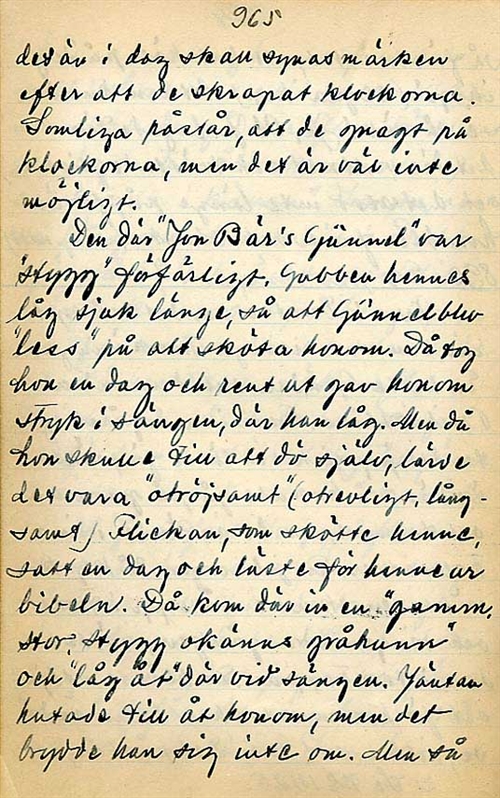 965
det är i dag skall synas märken
efter att de skrapat klockorna.
Somliga påstår, att de gnagt på
klockorna, men det är väl inte
möjligt.
Den där "Jon Bär's Gunnel" var
"stygg" förfärligt. Gubben hennes
låg sjuk länge, så att Gunnel blev
"less" på att sköta honom. Då tog
hon en dag och rent ut gav honom
stryk i sängen, där han låg. Men då
hon skulle till att dö själv, lärde
det vara "otröjsamt" (otrevligt, lång-
samt) Flickan, som skötte henne,
satt en dag och läste för henne ur
bibeln. Då kom där in en
stor, stygg okänns gråhunn"
och "låg åt" där vid sängen. Jäntan
hutade till åt honom, men det
brydde han sig inte om. Men så